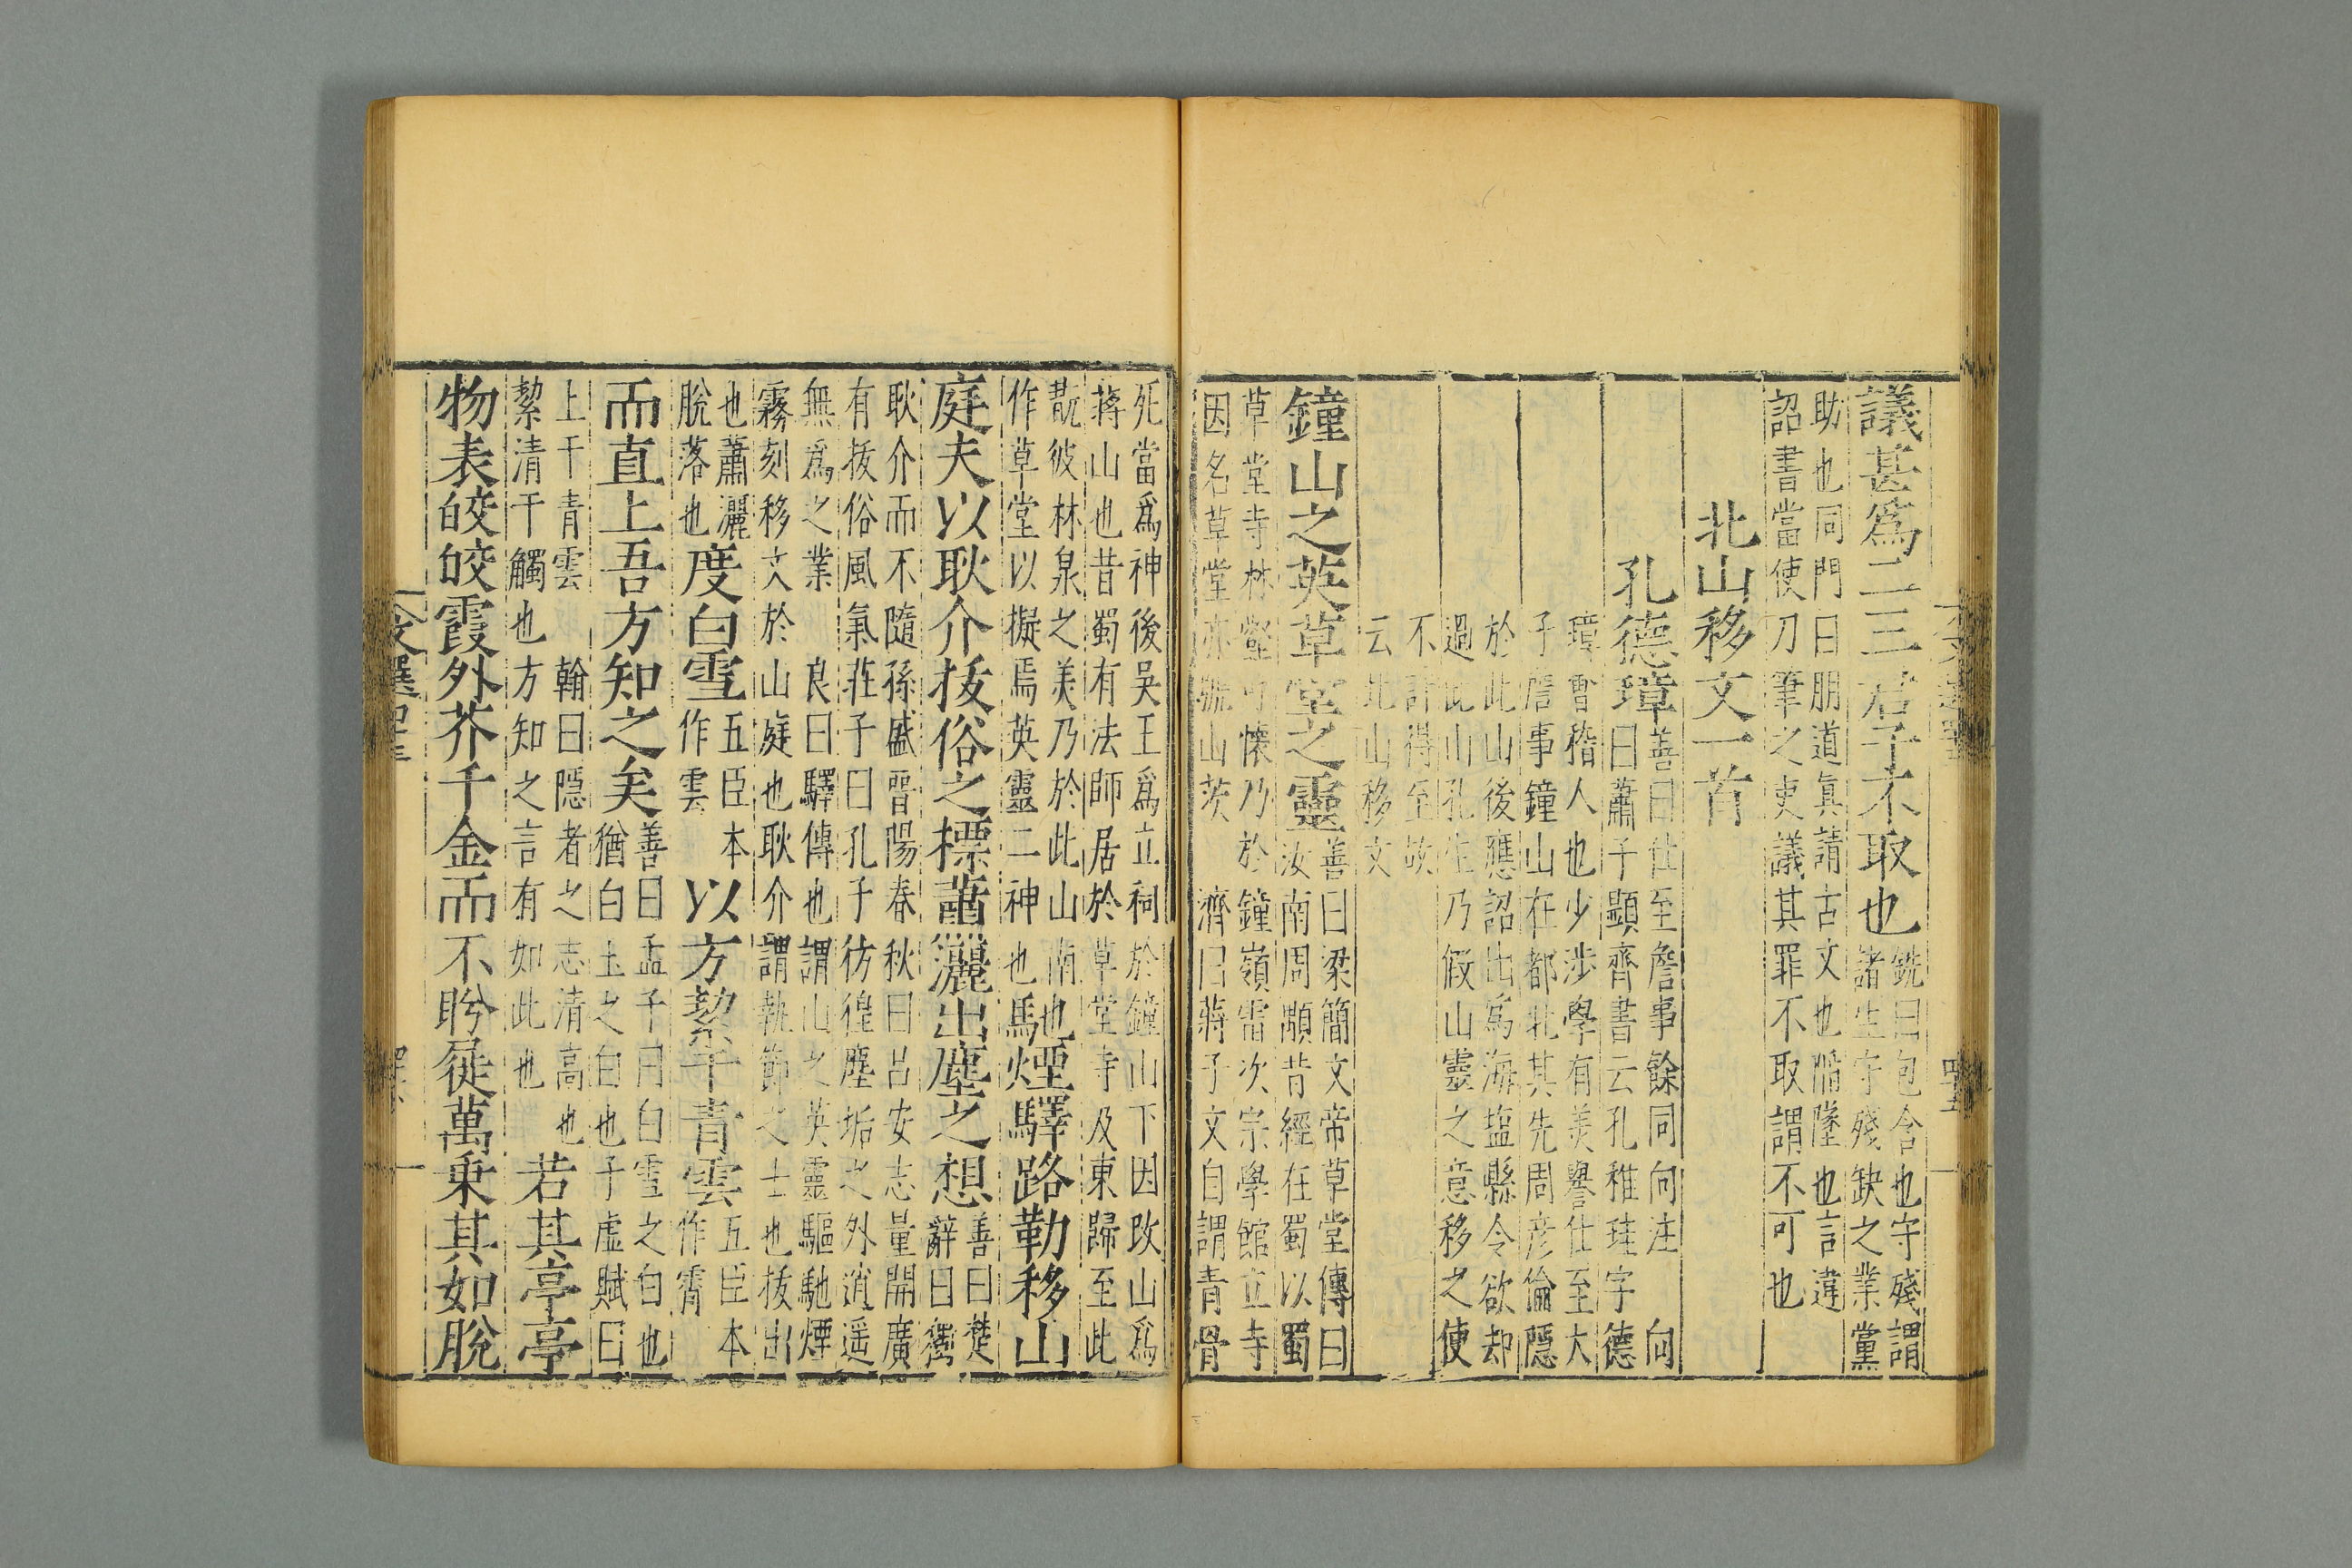 議甚爲二三君子不取也銑曰包含也守殘謂
諸生守殘缺之業黨
助也同門曰朋道眞謂古文也墮墜也言違
詔書當使刀筆之吏議其罪不取謂不可也
北山移文一首
孔德璋善曰仕至詹事餘同向注 向
曰蕭子顯齊書云孔稚珪字德
璋會稽人也少涉學有美譽仕至太
子詹事鐘山在都北其先周彦倫隱
於此山後應詔出爲海塩縣令欲却
過此山孔生乃假山靈之意移之使
不許得至故
云北山移文
鐘山之英草堂之靈善曰梁簡文帝草堂傳曰
汝南周顒昔經在蜀以蜀
草堂寺林壑可懐乃於鐘嶺雷次宗學館立寺
因名草堂亦號山茨 濟曰蔣子文自謂青骨
死當爲神後吳王爲立祠於鐘山下因改山爲
蔣山也昔蜀有法師居於草堂寺及東歸至此
翫彼林泉之美乃於此山南也
作草堂以擬焉英靈二神也
馳煙驛路勒移山
庭夫以耿介拔俗之標蕭灑出塵之想善曰楚
辭曰獨
耿介而不隨孫盛晉陽春秋曰呂安志量開廣
有拔俗風氣莊子曰孔子彷徨塵垢之外逍遥
無爲之業 良曰驛傳也謂山之英靈驅馳煙
霧刻移文於山庭也耿介謂執節之士也拔出
也蕭灑
脫落也
度白雪五臣本
作雲
以方絜干青雲五臣本
作霄
而直上吾方知之矣善曰孟子曰白雪之白也
猶白玉之白也子虛賦曰
上干青雲 翰曰隱者之志清高也
絜清干觸也方知之言有如此也
若其亭亭
物表皎皎霞外芥千金而不盻屣萬乗其如脫